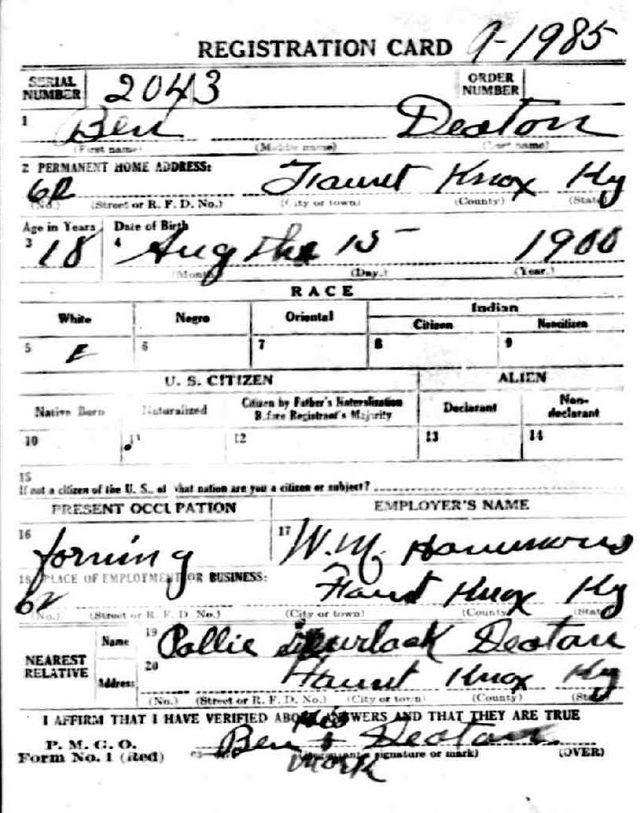 REGISTRATION CARD 9-1985
SERIAL NUMBER 2043 ORDER NUMBER
1 Ben Deaton
(First name) (Middle name) (Last name)
2 PERMANENT HOME ADDRESS:
Knox Ky
(No.) (Street or R. F. D. No.) (City or town) (County) (State)
Age in Years Date of Birth
3 18 4 Aug the 15 1900
(Month) (Day.) (Year.)
RACE
White Negro Oriental Indian
Citizen Noncitizen
5 6 7 8 9
U. S. CITIZEN ALIEN
Native Born Naturalized Citizen by Father's Naturalization Before Registrant's Majority Declarant Non-declarant
10 11 12 13 14
15
If not a citizen of the U. S., of what nation are you a citizen or subject?
PRESENT OCCUPATION EMPLOYER'S NAME
16 forming 17 W.M.
18 PLACE OF EMPLOYMENT OR BUSINESS:
Knox Ky
(No.) (Street or R. F. D. No.) (City or town) (County) (State)
NEAREST RELATIVE Name 19 Pollie Deaton
Address 20 Knox Ky
(No.) (Street or R. F. D. No.) (City or town) (County) (State)
I AFFIRM THAT I HAVE VERIFIED ABOVE ANSWERS AND THAT THEY ARE TRUE
P. M. G. O.
Form No. 1 (Red) his
Ben + Deaton
mark
signature or mark) (OVER)